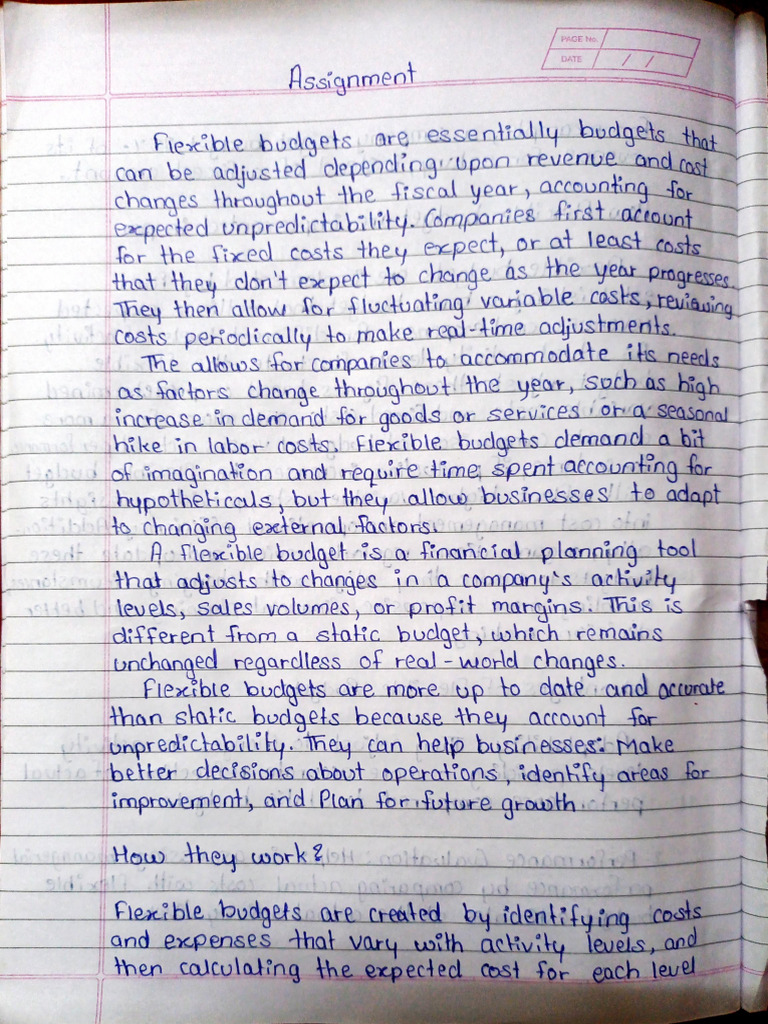 PAGE No.
DATE / /
Assignment
Flexible budgets are essentially budgets that
can be adjusted depending upon revenue and cost
changes throughout the fiscal year, accounting for
expected unpredictability. Companies first account
for the fixed costs they expect, or at least costs
that they don't expect to change as the year progresses.
They then allow for fluctuating variable costs, reviewing
costs periodically to make real-time adjustments.
The allows for companies to accommodate its needs
as factors change throughout the year, such as high
increase in demand for goods or services or a seasonal
hike in labor costs. Flexible budgets demand a bit
of imagination and require time spent accounting for
hypotheticals, but they allow businesses to adapt
to changing external factors.
A flexible budget is a financial planning tool
that adjusts to changes in a company's activity
levels, sales volumes, or profit margins. This is
different from a static budget, which remains
unchanged regardless of real-world changes.
Flexible budgets are more up to date and accurate
than static budgets because they account for
unpredictability. They can help businesses: Make
better decisions about operations, identify areas for
improvement, and Plan for future growth
How they work?
Flexible budgets are created by identifying costs
and expenses that vary with activity levels, and
then calculating the expected cost for each level